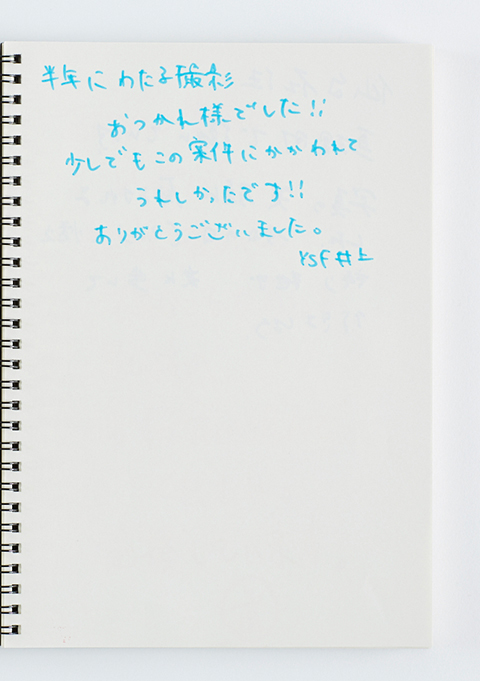 半年にわたる撮影
おつかれ様でした!!
少しでもこの案件にかかわれて
うれしかったです!!
ありがとうございました。
YSF 井上